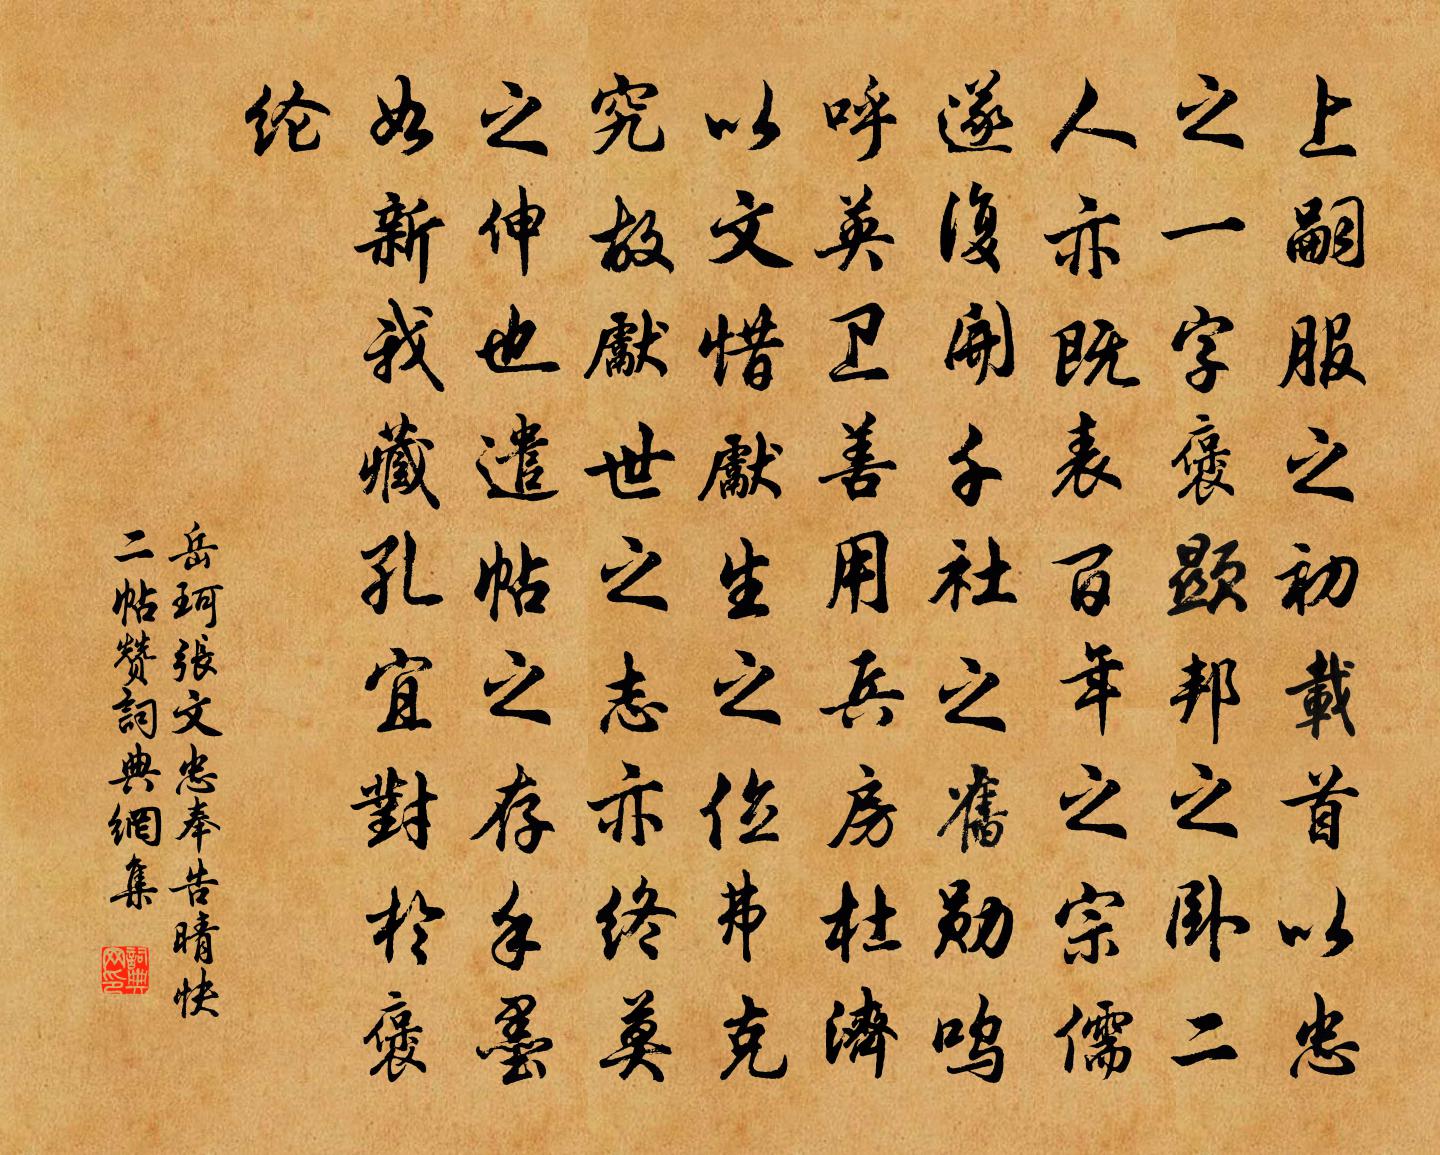 上嗣服之初載首以忠
之一字褒顯邦之卧二
人亦既表百年之宗儒
遂復開千社之舊勋鸣
呼英卫善用兵房杜濟
以文惜獻生之俭弗克
究故獻世之志亦终莫
之伸也遣帖之存手墨
如新我藏孔宜對於褒
纶
岳珂張文忠奉告晴快
二帖赞詞典網集
詞典
网印